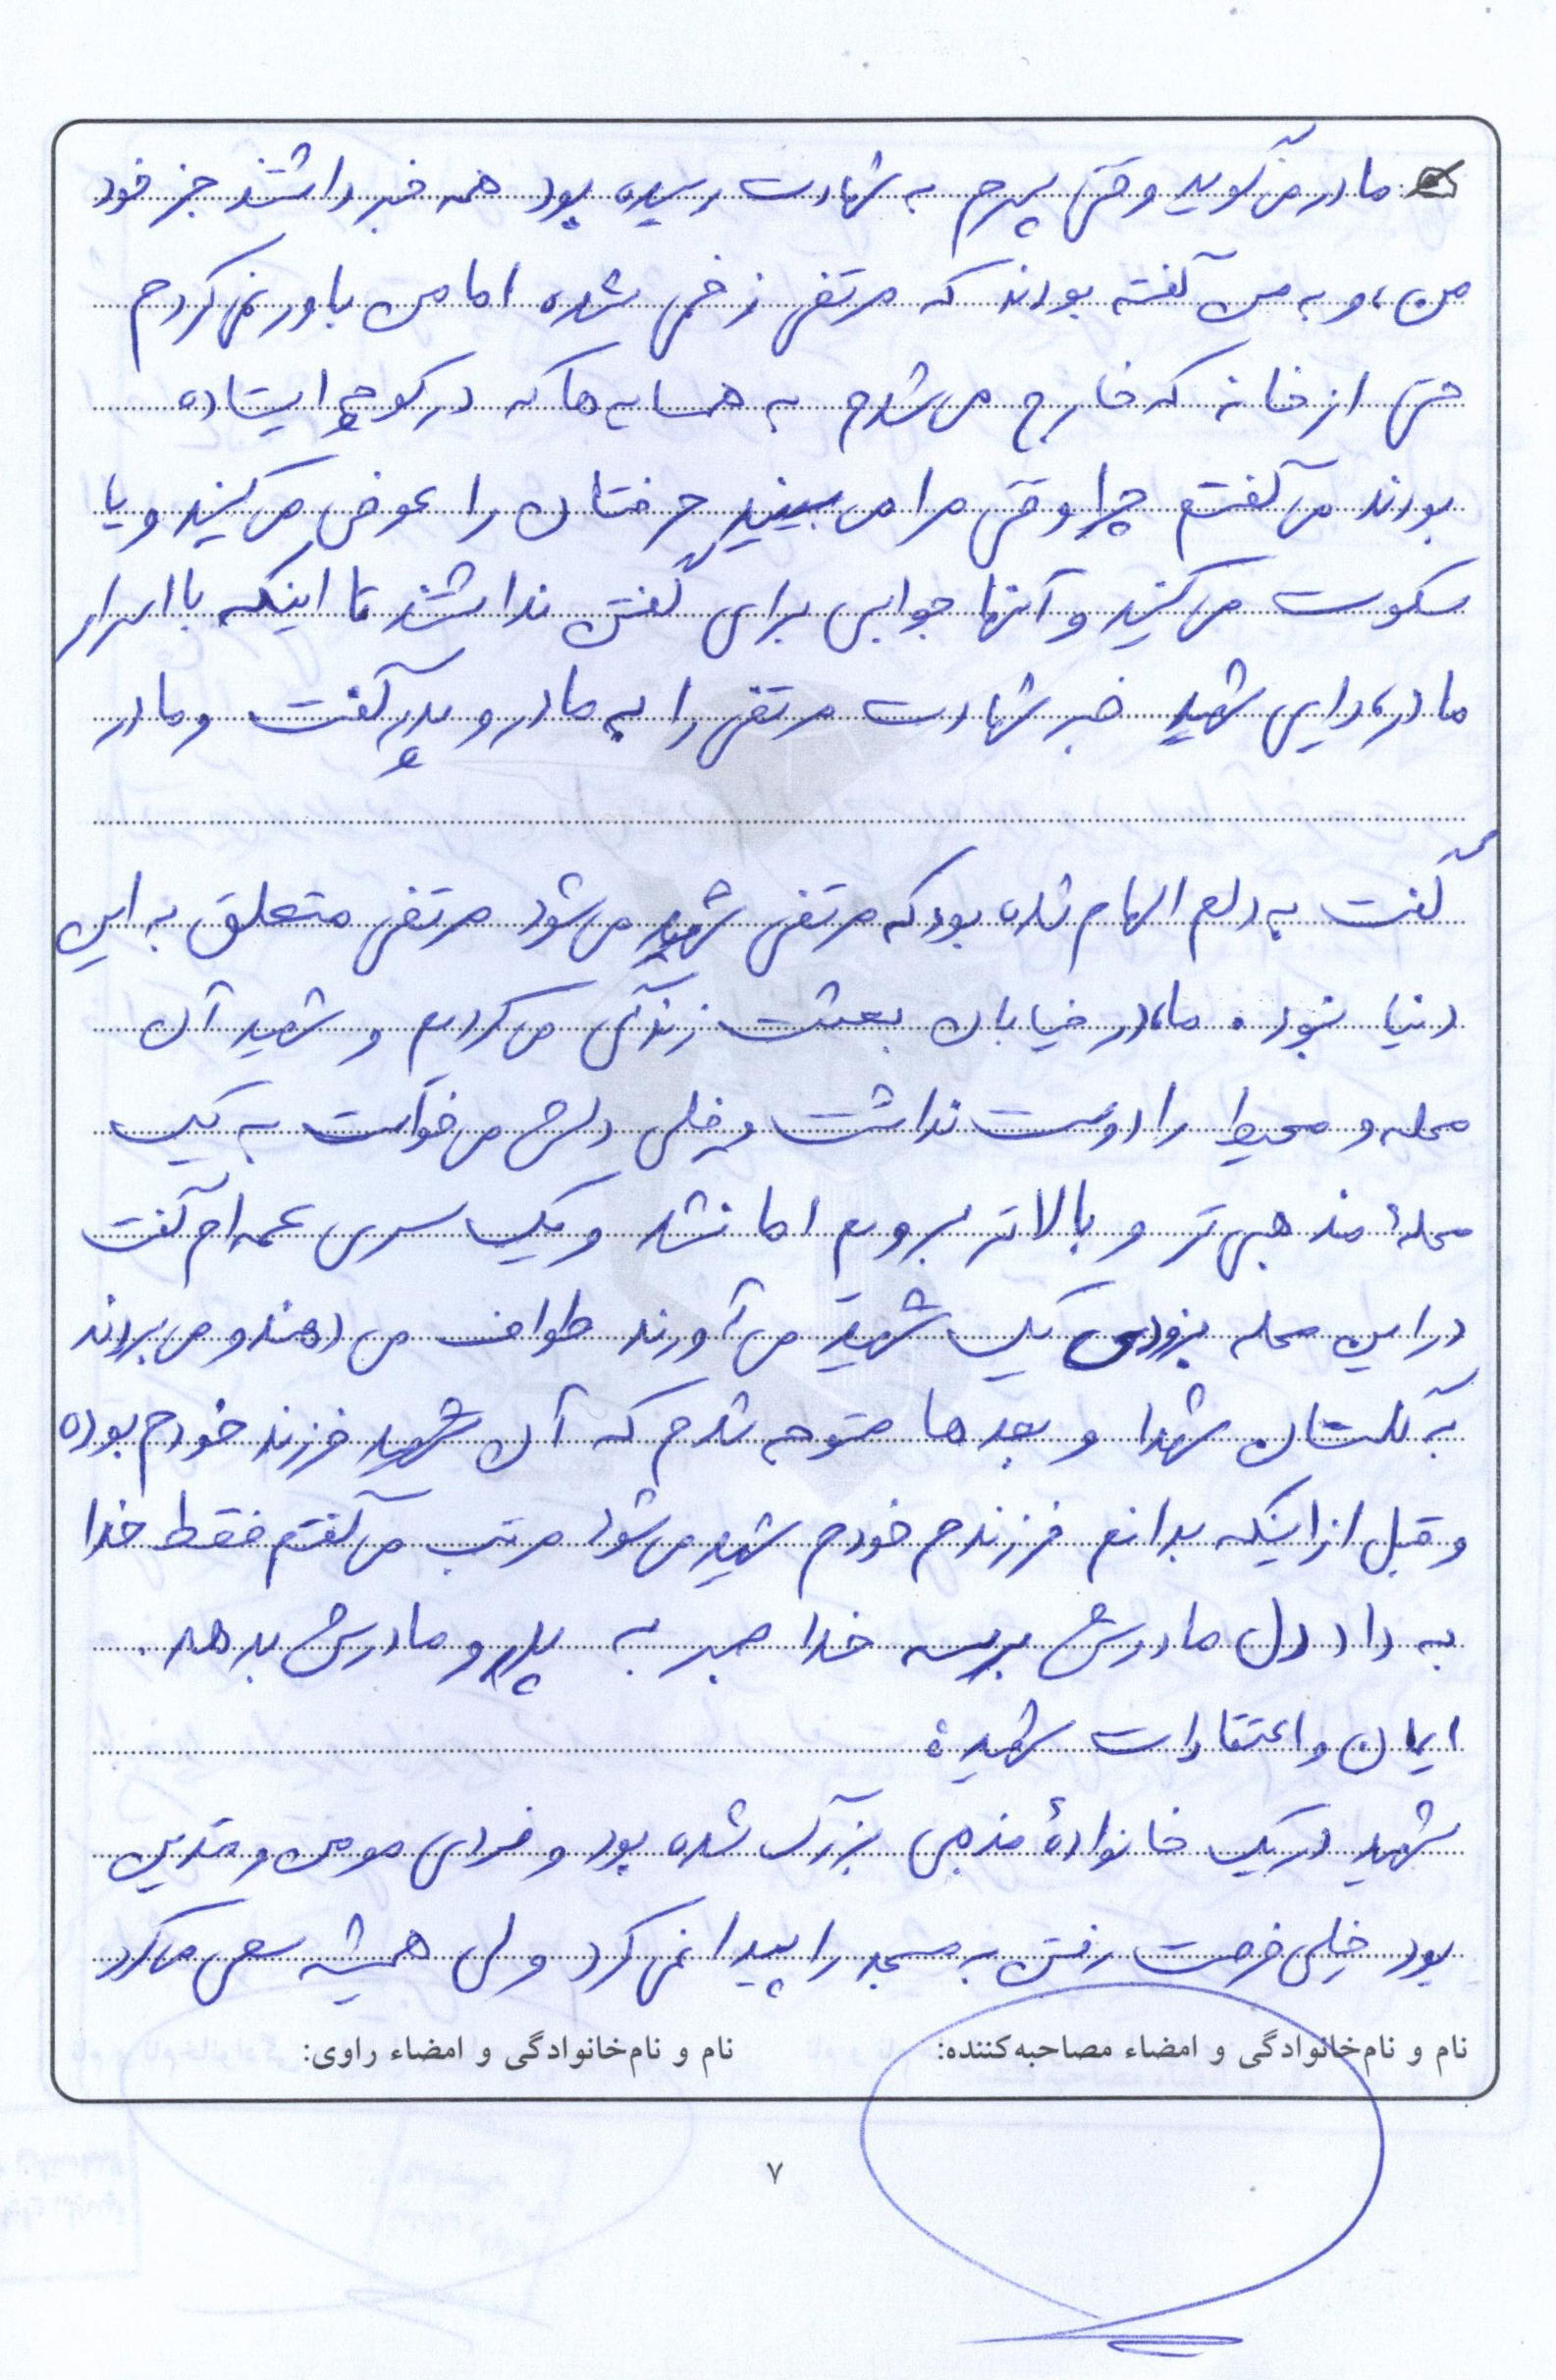 مادر می‌گوید وقتی پسرم به شهادت رسیده بود همه خبر داشتند جز خود
من، و به من گفته بودند که مرتضی زخمی شده اما من باور نمی‌کردم
حتی از خانه که خارج می‌شدم به همسایه‌ها که در کوچه ایستاده
بودند می‌گفتم چرا وقتی مرا می‌بینید حرفتان را عوض می‌کنید و یا
سکوت می‌کنید و آنها جوابی برای گفتن نداشتند تا اینکه با اسرار
مادر، دایی شهید خبر شهادت مرتضی را به مادر و پدر گفت و مادر
گفت به دلم الهام شده بود که مرتضی شهید می‌شود مرتضی متعلق به این
دنیا نبود. ما در خیابان بعثت زندگی می‌کردیم و شهید آن
محله و محیط را دوست نداشت و خیلی دلش می‌خواست به یک
محلهٔ مذهبی‌تر و بالاتر برویم اما نشد و یک سری عمه‌ام گفت
در این محله بزودی یک شهید می‌آورند طواف می‌دهند و می‌برند
به گلستان شهدا و بعدها متوجه شدم که آن شهید فرزند خودم بوده
و قبل از اینکه بدانم فرزندم خودم شهید می‌شود مرتب می‌گفتم فقط خدا
به داد دل مادرش برسه خدا صبر به پدر و مادرش بدهد.
ایمان و اعتقادات شهید:
شهید در یک خانوادهٔ مذهبی بزرگ شده بود و فردی مومن و متدین
بود خیلی فرصت رفتن به مسجد را پیدا نمی‌کرد ولی همیشه سعی می‌کرد
نام و نام‌خانوادگی و امضاء مصاحبه‌کننده: نام و نام‌خانوادگی و امضاء راوی:
۷